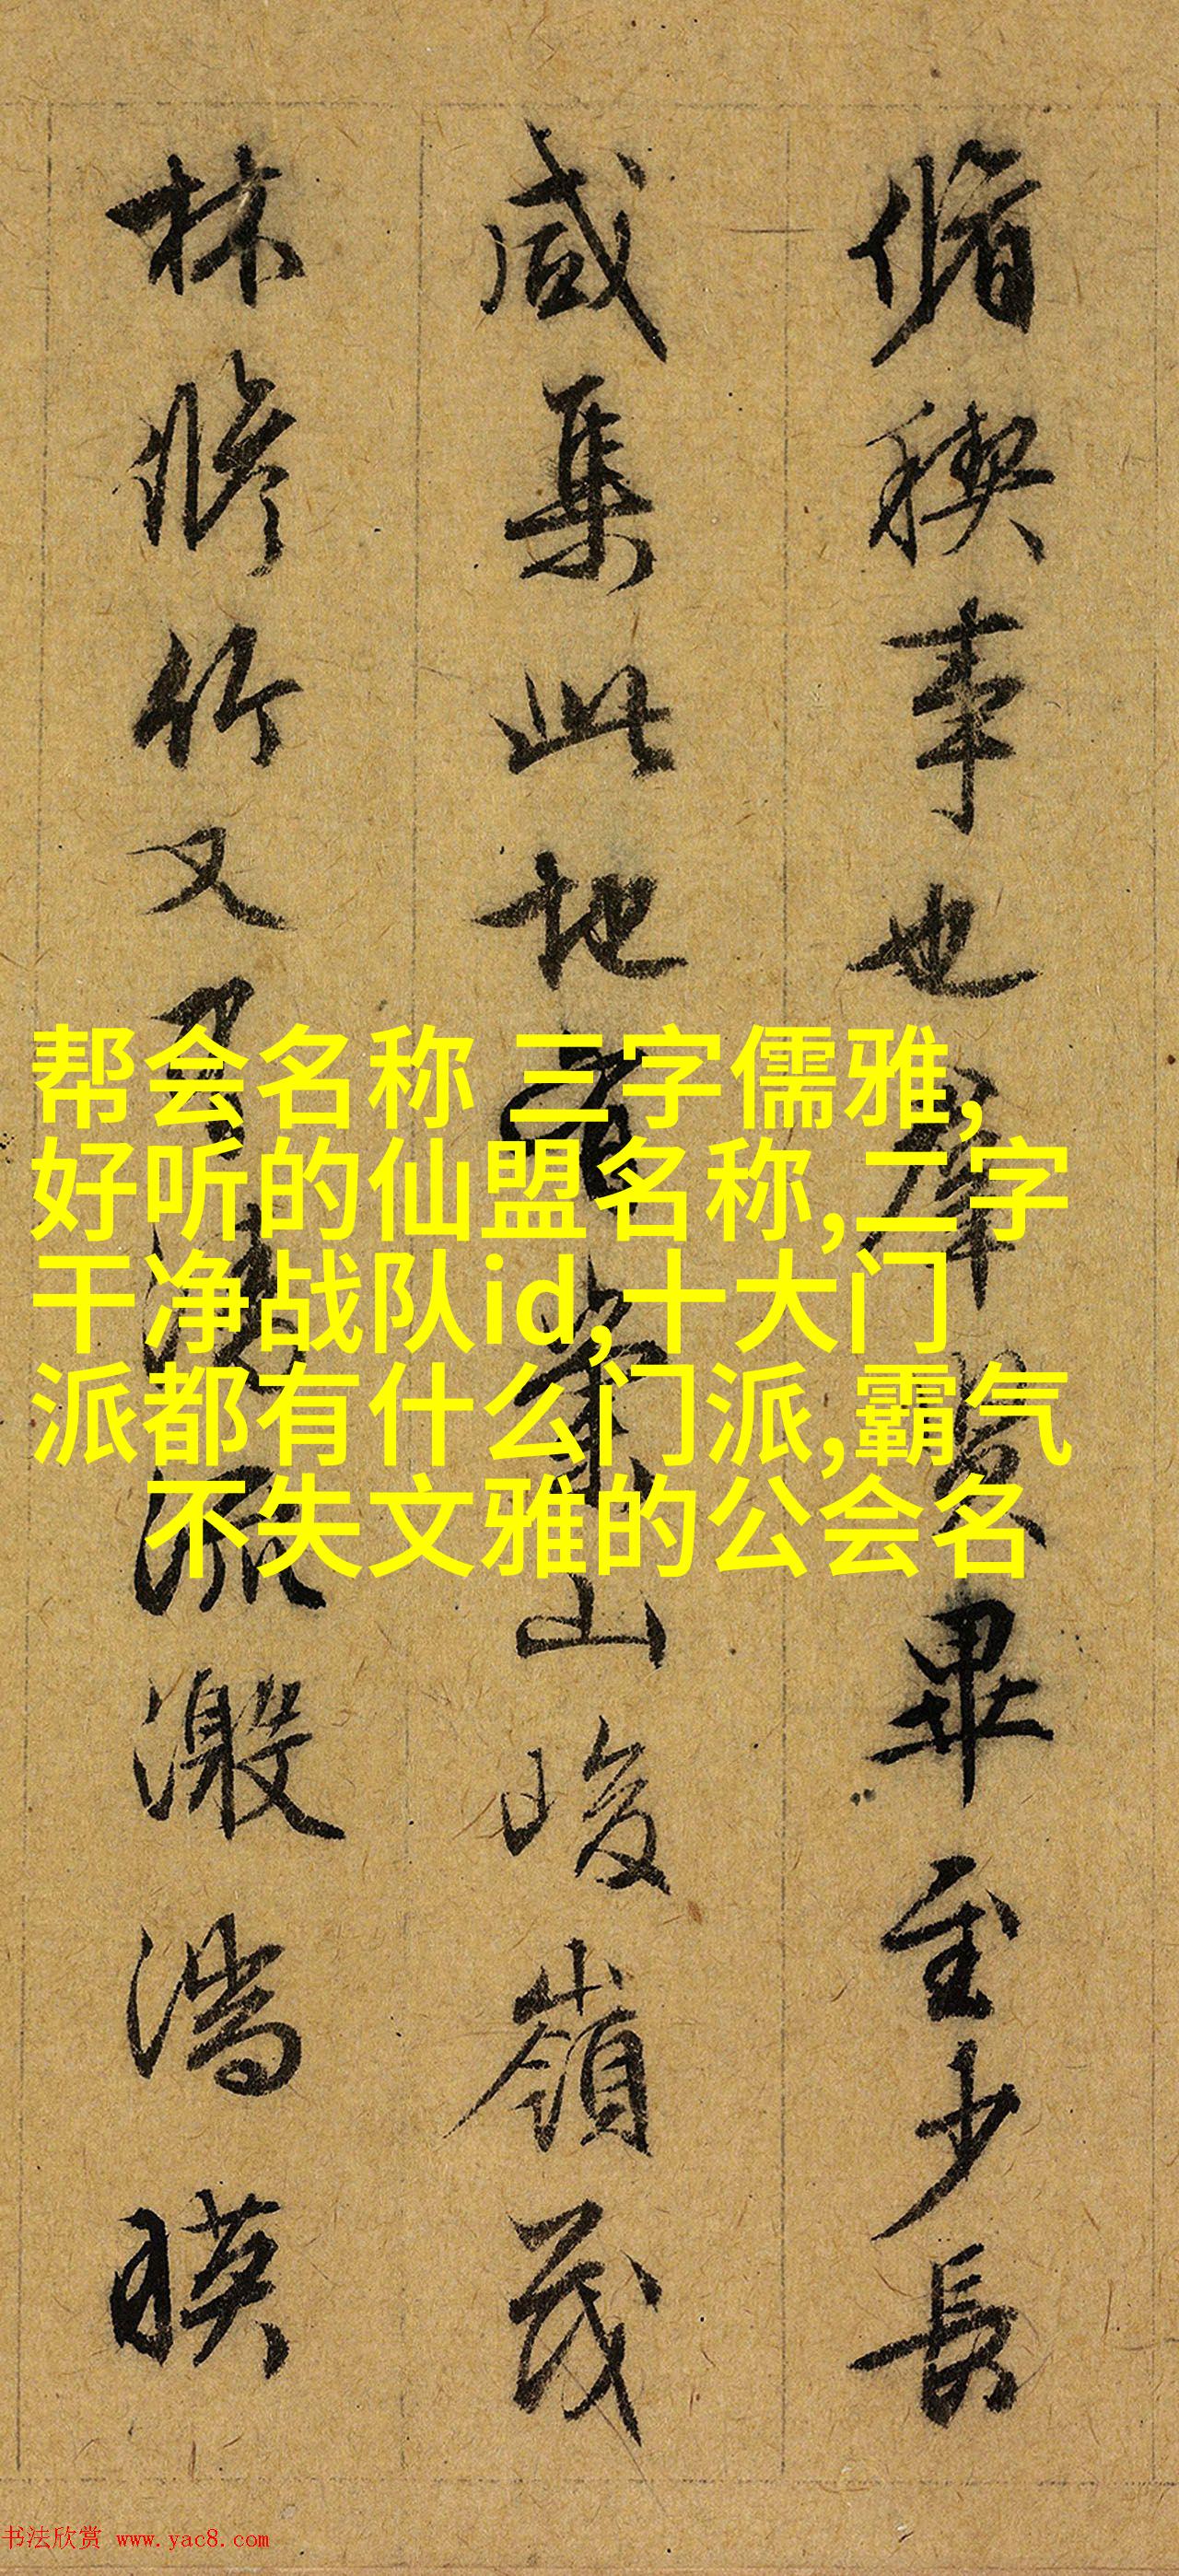 脩稧事也羣賢畢至少長
咸集此地有崇山峻嶺茂
林脩竹又有清流激湍暎
帮会名称 三字儒雅,
好听的仙盟名称,二字
干净战队id,十大门
派都有什么门派,霸气
不失文雅的公会名
书法欣赏 www.yac8.com